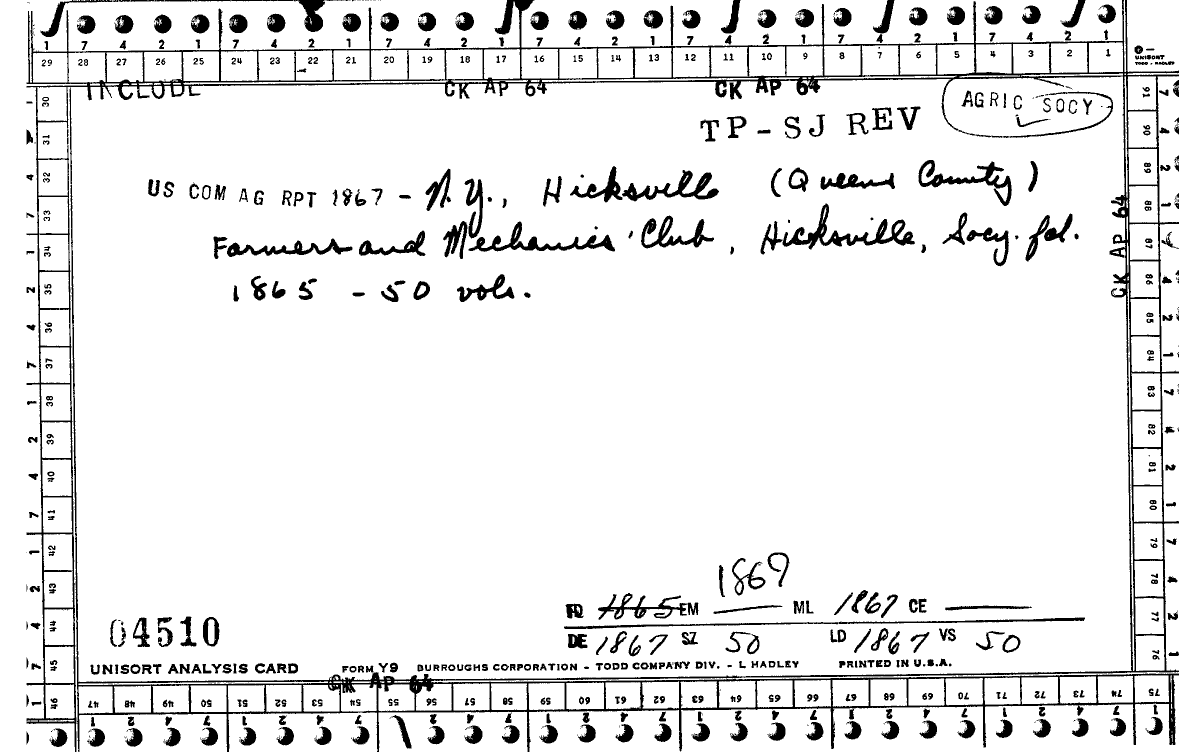 1 7 4 2 1 7 4 2 1 7 4 2 1 7 4 2 1 7 4 2 1 7 4 2 1 7 4 2 1
29 28 27 26 25 24 23 22 21 20 19 18 17 16 15 14 13 12 11 10 9 8 7 6 5 4 3 2 1
UNISORT
TODD - HADLEY
INCLUDE CK AP 64 CK AP 64
AGRIC SOCY
TP-SJ REV
US COM AG RPT 1867 - N.Y., Hicksville (Queens County)
Farmers and Mechanics' Club, Hicksville, Socy. fd.
1865 - 50 vols.
CK AP 64
30 31 32 33 34 35 36 37 38 39 40 41 42 43 44 45 46
91 90 89 88 87 86 85 84 83 82 81 80 79 78 77 76
1869
FD 1865 EM ML 1867 CE
DE 1867 SZ 50 LD 1867 VS 50
04510
UNISORT ANALYSIS CARD FORM Y9 BURROUGHS CORPORATION - TODD COMPANY DIV. - L HADLEY PRINTED IN U.S.A.
CK AP 64
47 48 49 50 51 52 53 54 55 56 57 58 59 60 61 62 63 64 65 66 67 68 69 70 71 72 73 74 75